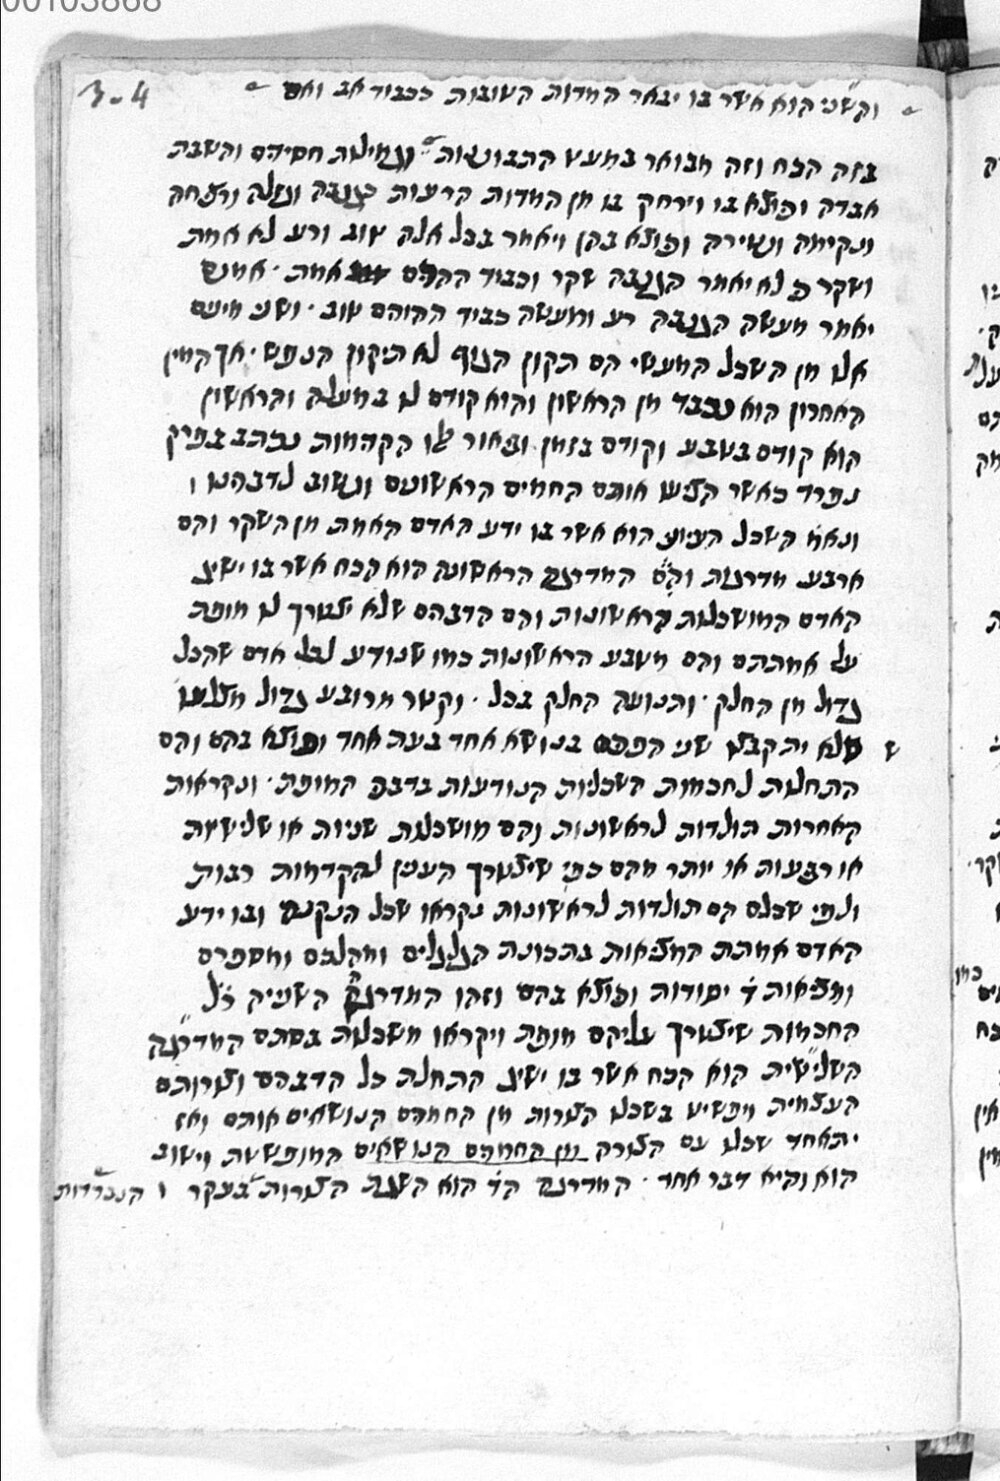 00103868
3-4
והשני הוא אשר בו יבאר המדות הטובות ככבוד אב ואם
בזה הכח וזה מבואר במעט התבוננות וגמילות חסידים והשבת
אבדה וכיוצא בו וירחק בו מן המדות הרעות כגנבה וגזלה ורציחה
ונקימה ונטירה וכיוצא בהן ויאמר בכל אלה טוב ורע לא אמת
ושקר כי לא יאמר הגנבה שקר וכבוד ההורים אמת · אמנם
יאמר מעשה הגנבה רע ומעשה כבוד ההורים טוב · ושני מינים
אלו מן השכל המעשי הם תקון הגוף לא תיקון הנפש · אך המין
האחרון הוא נכבד מן הראשון והיא קודם לו במעלה והראשון
הוא קודם בטבע וקודם בזמן ובאור אלו ההקדמות נכתב בפרק
נפרד כאשר הציעו אותם החכמים הראשונים ונשוב לדברינו ׀
ונאמר השכל העיוני הוא אשר בו ידע האדם האמת מן השקר והם
ארבע מדרגות והם המדרגה הראשונה הוא הכח אשר בו ישיג
האדם המושכלות הראשונות והם הדברים שלא יצטרך לו מופת
על אמתתם והם מטבע הראשונות כמו שנודע לכל אדם שהכל
גדול מן החלק · ותנועת החלק בכל · וקטר מרובע גדול מצלעו
ש שלא יתקבצו שני הפכים בנושא אחד בעת אחד וכיוצא בהם והם
התחלות לחכמות השכליות הנודעות בדבר המופת · ונקראות
האחרות תולדות לראשונות והם מושכלות שניות או שלישיות
או רביעיות או יותר מהם כפי שיצטרך הענין להקדמות רבות
ולפי שכלם הם תולדות לראשונות נקראו שכל הנקנה ובו ידע
האדם אמתת המציאות בתכונת הגלגלים ומהלכם ומספרם
ומציאות ד יסודות וכיוצא בהם וזהו המדרגה השנית כל
החכמות שיצטרך עליהם מופת ויקראו משכלות בסתם המדרגה
השלישית הוא הכח אשר בו ישיג התחלת כל הדברים וצורותם
העצמית ויפשיט בשכלו הצורות מן החמרים הנושאים אותם ואז
יתאחד שכלו עם הצורה מן החמרים הנושאים המופשטת וישוב
הוא והיא דבר אחד · המדרגה הד הוא השגת הצורות בעקר ׀ הנפרדות